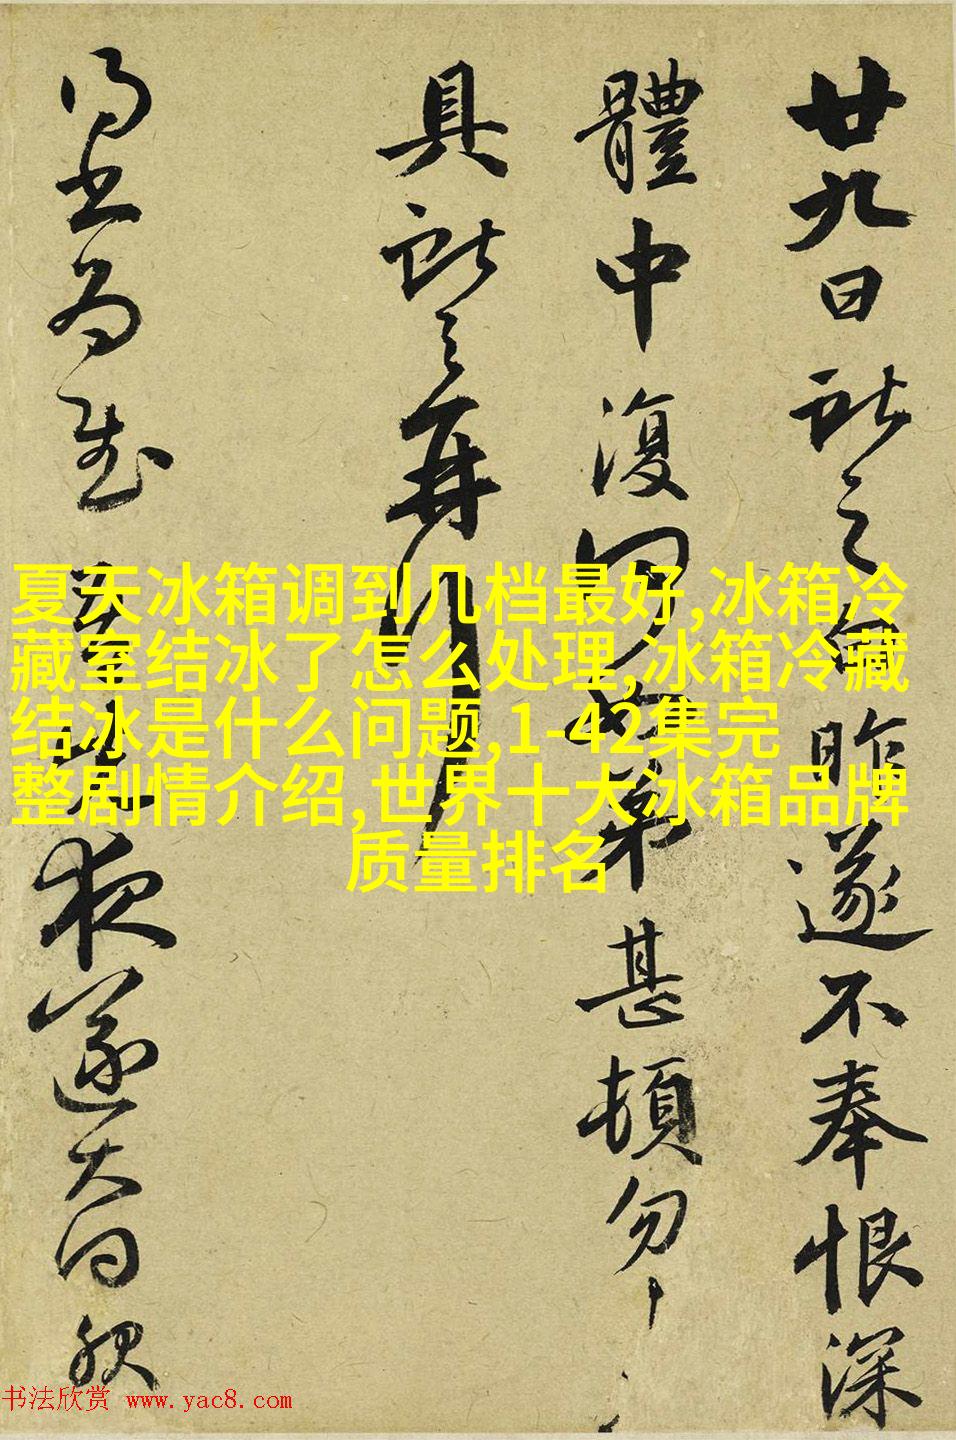 廿九日獻之白昨遂不奉恨深
體中復何如弟甚頓勿〻
具獻之再拜
夜遂大
夏天冰箱调到几档最好,冰箱冷
藏室结冰了怎么处理,冰箱冷藏
结冰是什么问题,1-42集完
整剧情介绍,世界十大冰箱品牌
质量排名
书法欣赏 www.yac8.com